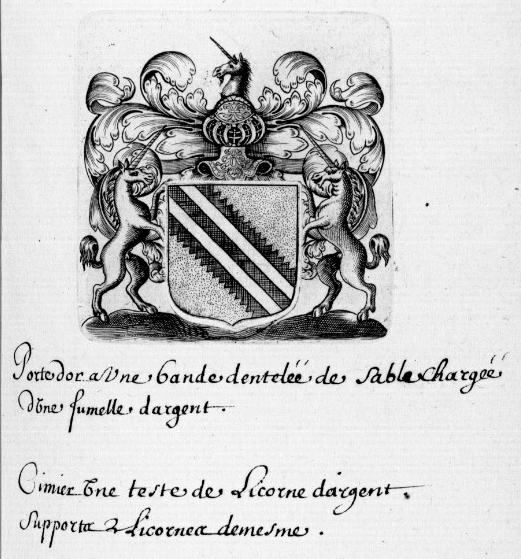 Porte dor a Une bande denteleé de sable chargeé
dUne fumelle dargent.
Cimier Une teste de Licorne dargent.
Supports 2 Licornes demesme.